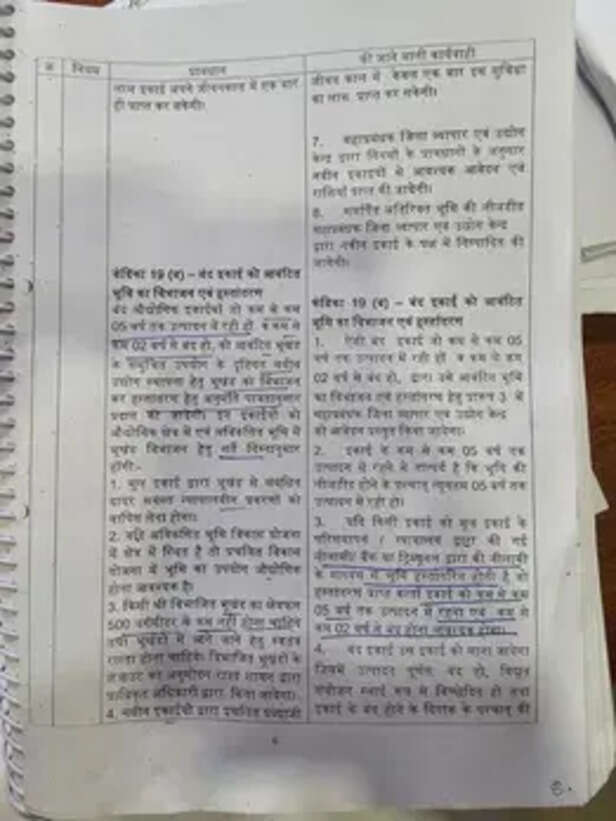 क्र नियम प्रावधान की जाने वाली कार्यवाही
लाभ इकाई अपने जीवनकाल में एक बार
ही प्राप्त कर सकेगी।
कंडिका 19 (ब) – बंद इकाई को आवंटित
भूमि का विभाजन एवं हस्तांतरण
बंद औद्योगिक इकाईयों जो कम से कम
05 वर्ष तक उत्पादन में रही हो व कम से
कम 02 वर्ष से बंद हो, को आवंटित भूखंड
के समुचित उपयोग के दृष्टिगत नवीन
उद्योग स्थापना हेतु भूखंड का विभाजन
कर हस्तांतरण हेतु अनुमति पात्रतानुसार
प्रदान की जायेगी। इन इकाईयों को
औद्योगिक क्षेत्र में एवं अविकसित भूमि में
भूखंड विभाजन हेतु शर्ते निम्नानुसार
होंगी:-
1. मूल इकाई द्वारा भूखंड से संबंधित
दायर समस्त न्यायालयीन प्रकरणों को
वापिस लेना होगा।
2. यदि अविकसित भूमि विकास योजना
में क्षेत्र में स्थित है तो प्रचलित विकास
योजना में भूमि का उपयोग औद्योगिक
होना आवश्यक है।
3. किसी भी विभाजित भूखंड का क्षेत्रफल
500 वर्गमीटर से कम नहीं होना चाहिये
सभी भूखंडों में आने जाने हेतु स्वतंत्र
रास्ता होना चाहिये। विभाजित भूखंडों के
लेआउट का अनुमोदन राज्य शासन द्वारा
प्राधिकृत अधिकारी द्वारा किया जावेगा।
4. नवीन इकाईयों द्वारा प्रचलित प्रब्याजी
जीवन काल में केवल एक बार इस सुविधा
का लाभ प्राप्त कर सकेगी।
7. महाप्रबंधक जिला व्यापार एवं उद्योग
केन्द्र द्वारा नियमों के प्रावधानों के अनुसार
नवीन इकाइयों से आवश्यक आवेदन एवं
राशियां प्राप्त की जायेगी।
8. समर्पित अतिरिक्त भूमि की लीजडीड
महाप्रबंधक जिला व्यापार एवं उद्योग केन्द्र
द्वारा नवीन इकाई के पक्ष में निष्पादित की
जायेगी।
कंडिका 19 (ब) – बंद इकाई को आवंटित
भूमि का विभाजन एवं हस्तांतरण
1. ऐसी बंद इकाई जो कम से कम 05
वर्ष तक उत्पादन में रही हो व कम से कम
02 वर्ष से बंद हो, द्वारा उसे आवंटित भूमि
का विभाजन एवं हस्तांतरण हेतु प्रारूप 3 में
महाप्रबंधक जिला व्यापार एवं उद्योग केन्द्र
को आवेदन प्रस्तुत किया जायेगा।
2. इकाई के कम से कम 05 वर्ष तक
उत्पादन में रहने से तात्पर्य है कि भूमि की
लीजडीड होने के पश्चात् न्यूनतम 05 वर्ष तक
उत्पादन में रही हो।
3. यदि किसी इकाई को मूल इकाई के
परिसमापन / न्यायालय द्वारा की गई
नीलामी/ बैंक या ट्रिब्यूनल द्वारा की नीलामी
के माध्यम से भूमि हस्तांतरित होती है तो
हस्तांतरण प्राप्त कर्ता इकाई को कम से कम
05 वर्ष तक उत्पादन में रहना एवं कम से
कम 02 वर्ष से बंद होना आवश्यक होगा।
4. बंद इकाई उस इकाई को माना जायेगा
जिसमें उत्पादन पूर्णतः बंद हो, विद्युत
संयोजन स्थाई रूप से विच्छेदित हो तथा
इकाई के बंद होने के दिनांक के पश्चात् की